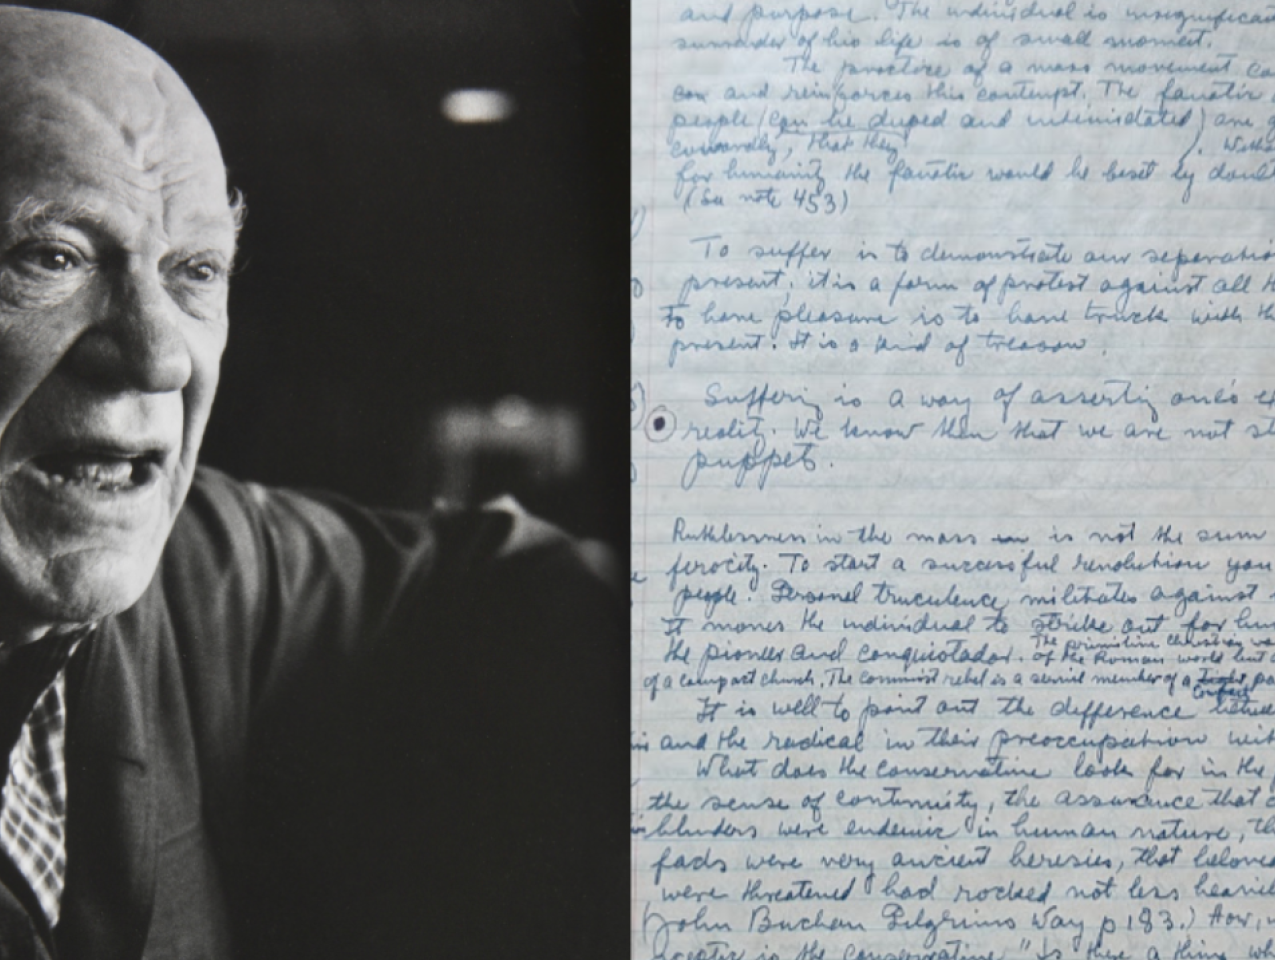 and purpose. The individual is insignificant
surrender of his life is of small moment.
The practice of a mass movement
and reinforces this contempt. The fanatic
people (can be duped and intimidated) are
cowardly, that they
for humanity the fanatic would be beset by doubt
(See note 453)
To suffer is to demonstrate our separation
present; it is a form of protest against all
To have pleasure is to have truck with the
present. It is a kind of treason.
Suffering is a way of asserting one's
reality. We know then that we are not
puppets.
Ruthlessness in the mass is not the sum
ferocity. To start a successful revolution you
people. Personal truculence militates against
It moves the individual to strike out for
the pioneer and conquistador. The primitive Christian
of the Roman world but
of a compact church. The communist rebel is a servile member of a
It is well to point out the difference between
and the radical in their preoccupation with
What does the conservative look for in the
the sense of continuity, the assurance that
blunders were endemic in human nature,
fads were very ancient heresies, that beloved
were threatened had rocked not less heavily
(John Buchan Pilgrims Way p 183.) How,
is the conservative "Is there a thing